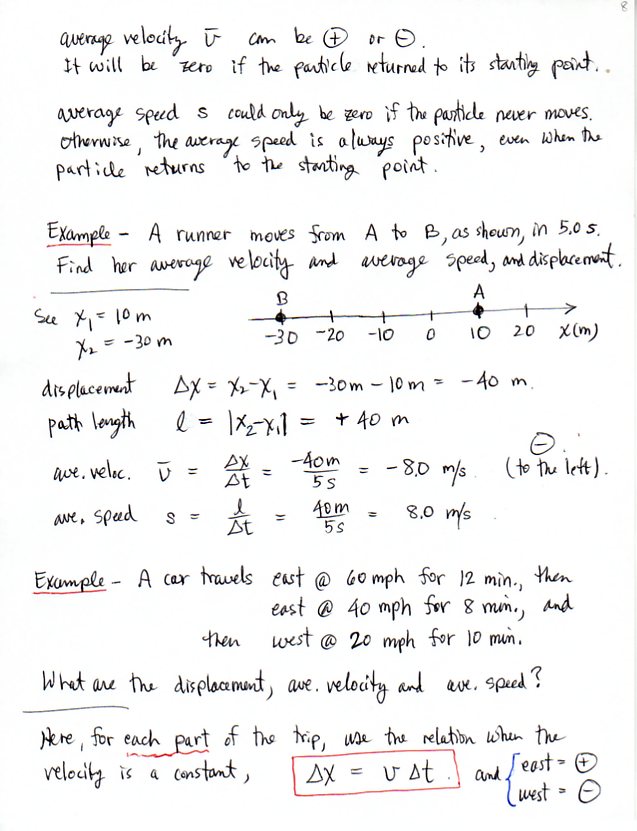 8
average velocity v̄ can be ⊕ or ⊖.
It will be zero if the particle returned to its starting point.
average speed s could only be zero if the particle never moves.
Otherwise, the average speed is always positive, even when the
particle returns to the starting point.
Example - A runner moves from A to B, as shown, in 5.0 s.
Find her average velocity and average speed, and displacement.
B A
See x₁ = 10 m
x₂ = -30 m
-30 -20 -10 0 10 20 x(m)
displacement Δx = x₂-x₁ = -30m - 10m = -40 m.
path length l = |x₂-x₁| = + 40 m
ave. veloc. v̄ = Δx/Δt = -40m/5s = -8.0 m/s ⊖ (to the left).
ave. speed s = l/Δt = 40m/5s = 8.0 m/s
Example - A car travels east @ 60 mph for 12 min., then
east @ 40 mph for 8 min., and
then west @ 20 mph for 10 min.
What are the displacement, ave. velocity and ave. speed?
Here, for each part of the trip, use the relation when the
velocity is a constant, Δx = v Δt. and { east = ⊕
west = ⊖